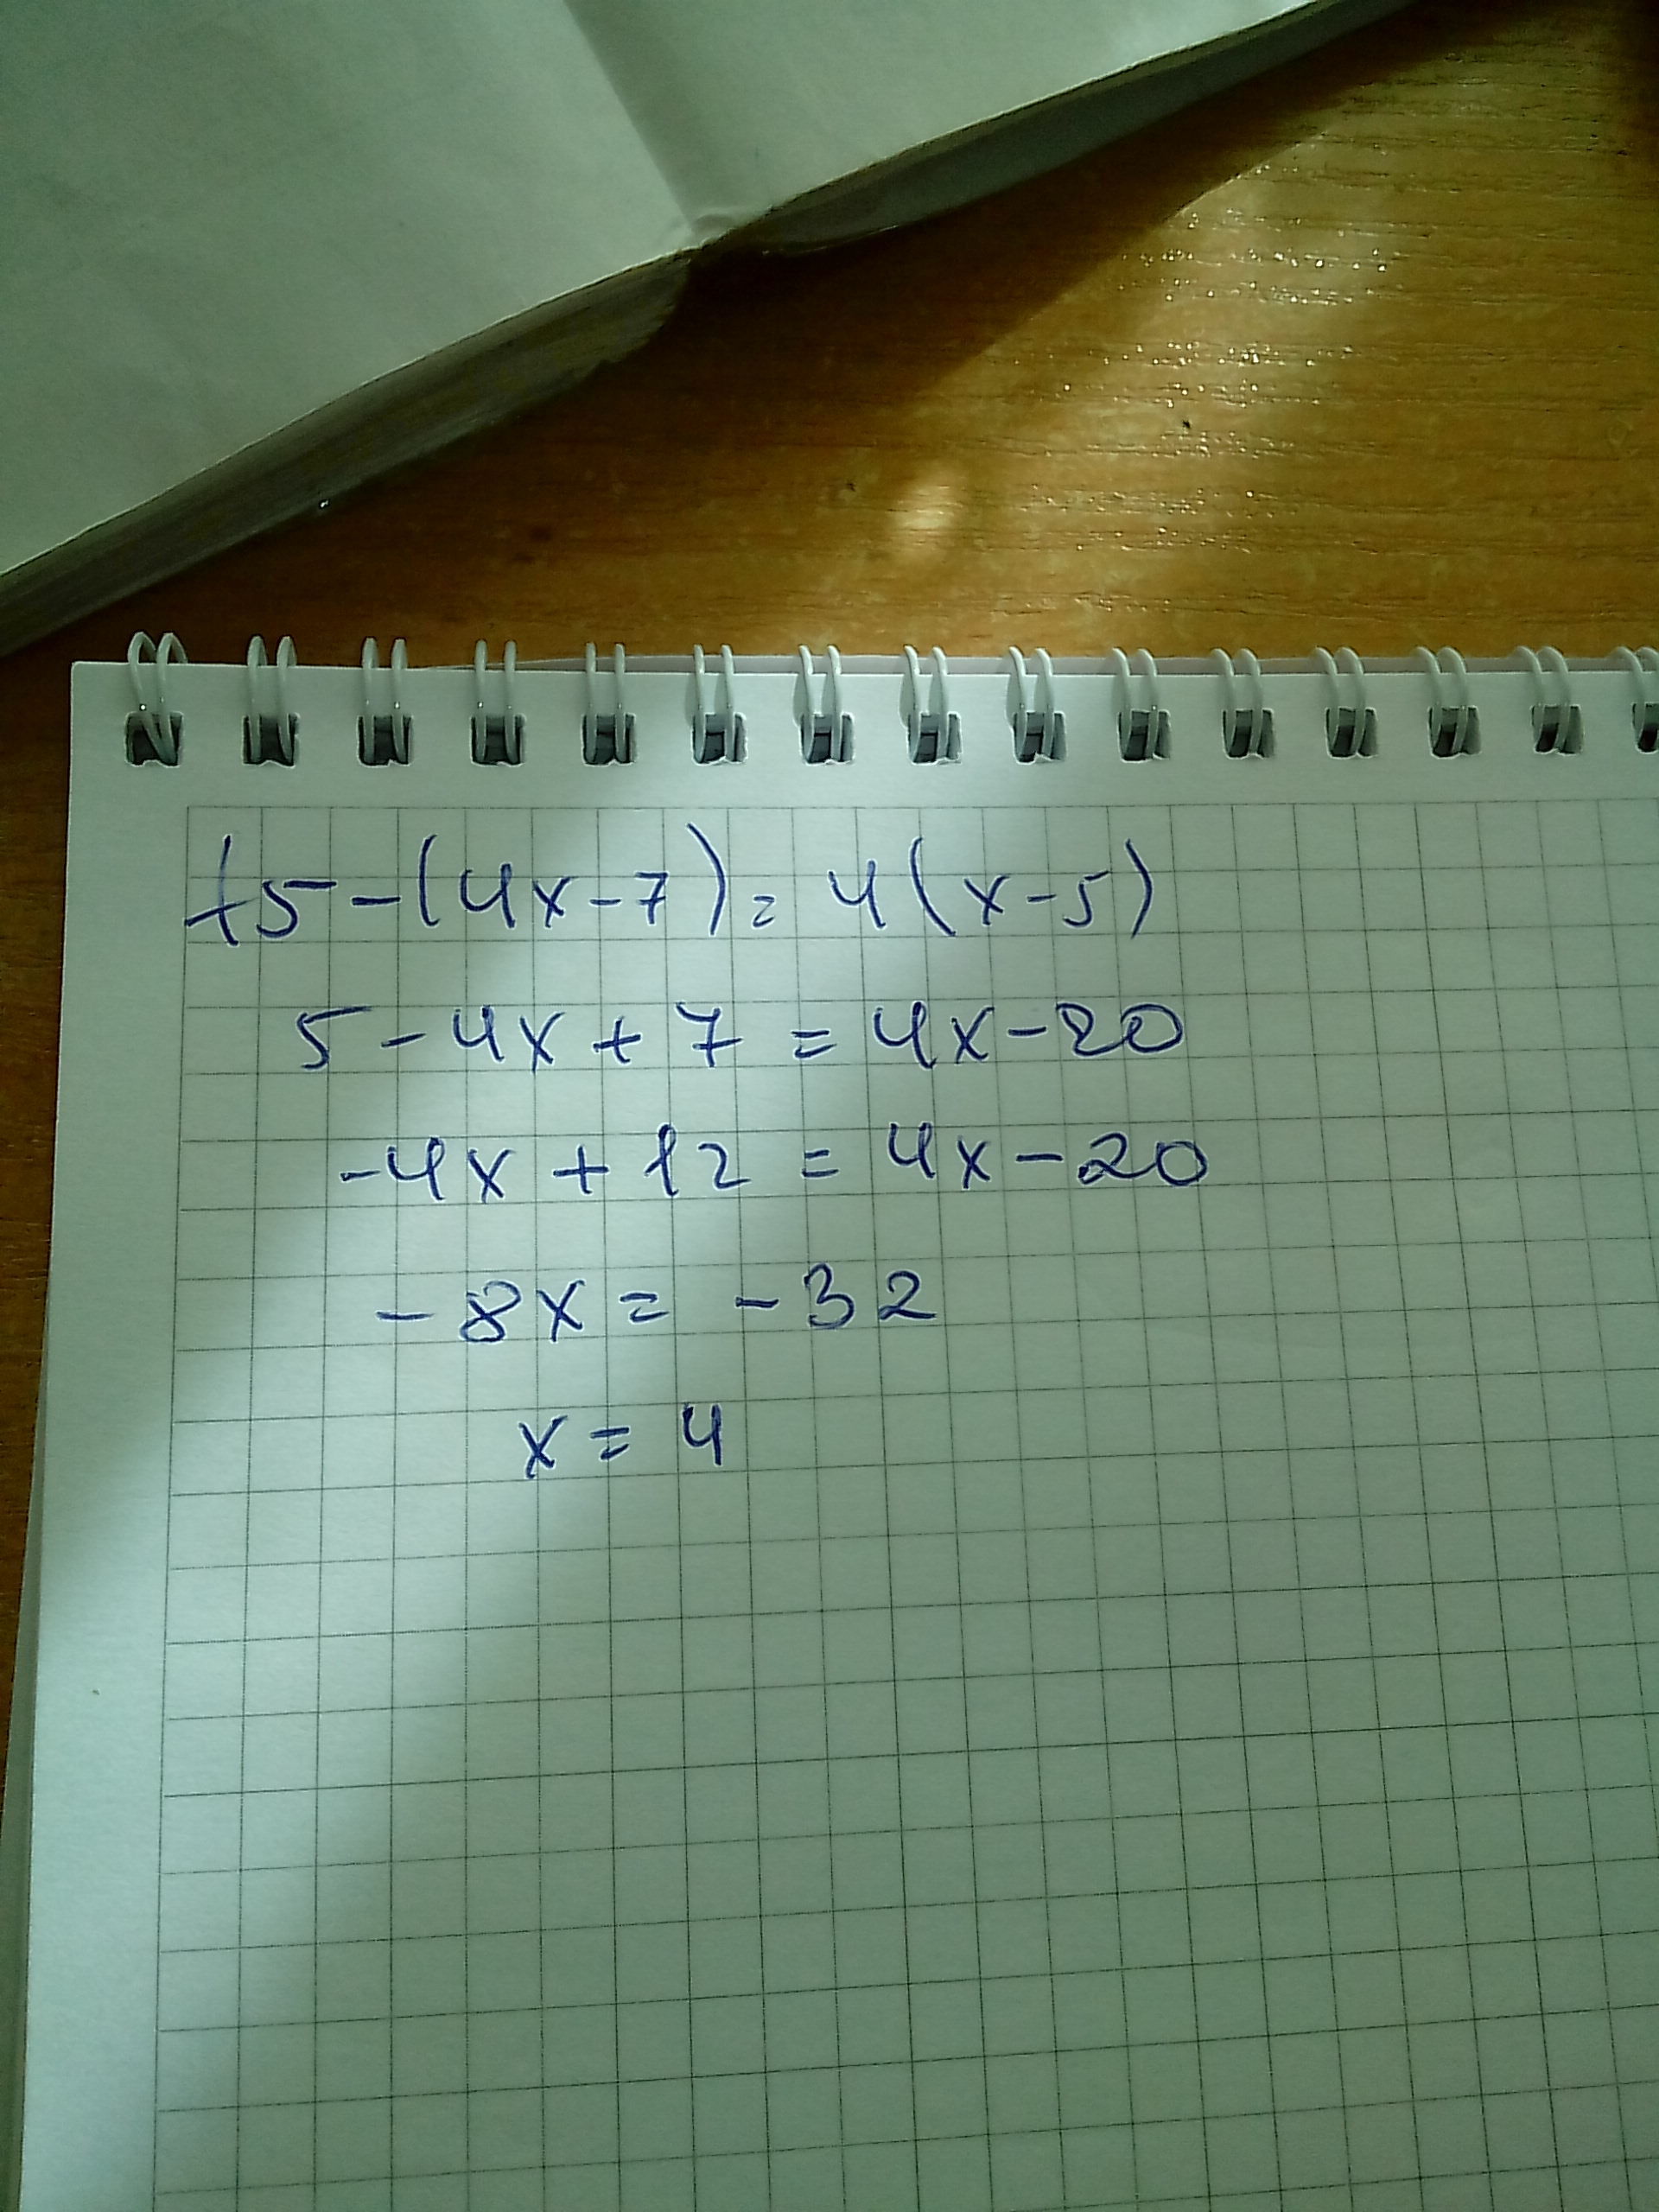 +5-(4x-7)=4(x-5)
5-4x+7=4x-20
-4x+12=4x-20
-8x=-32
x=4